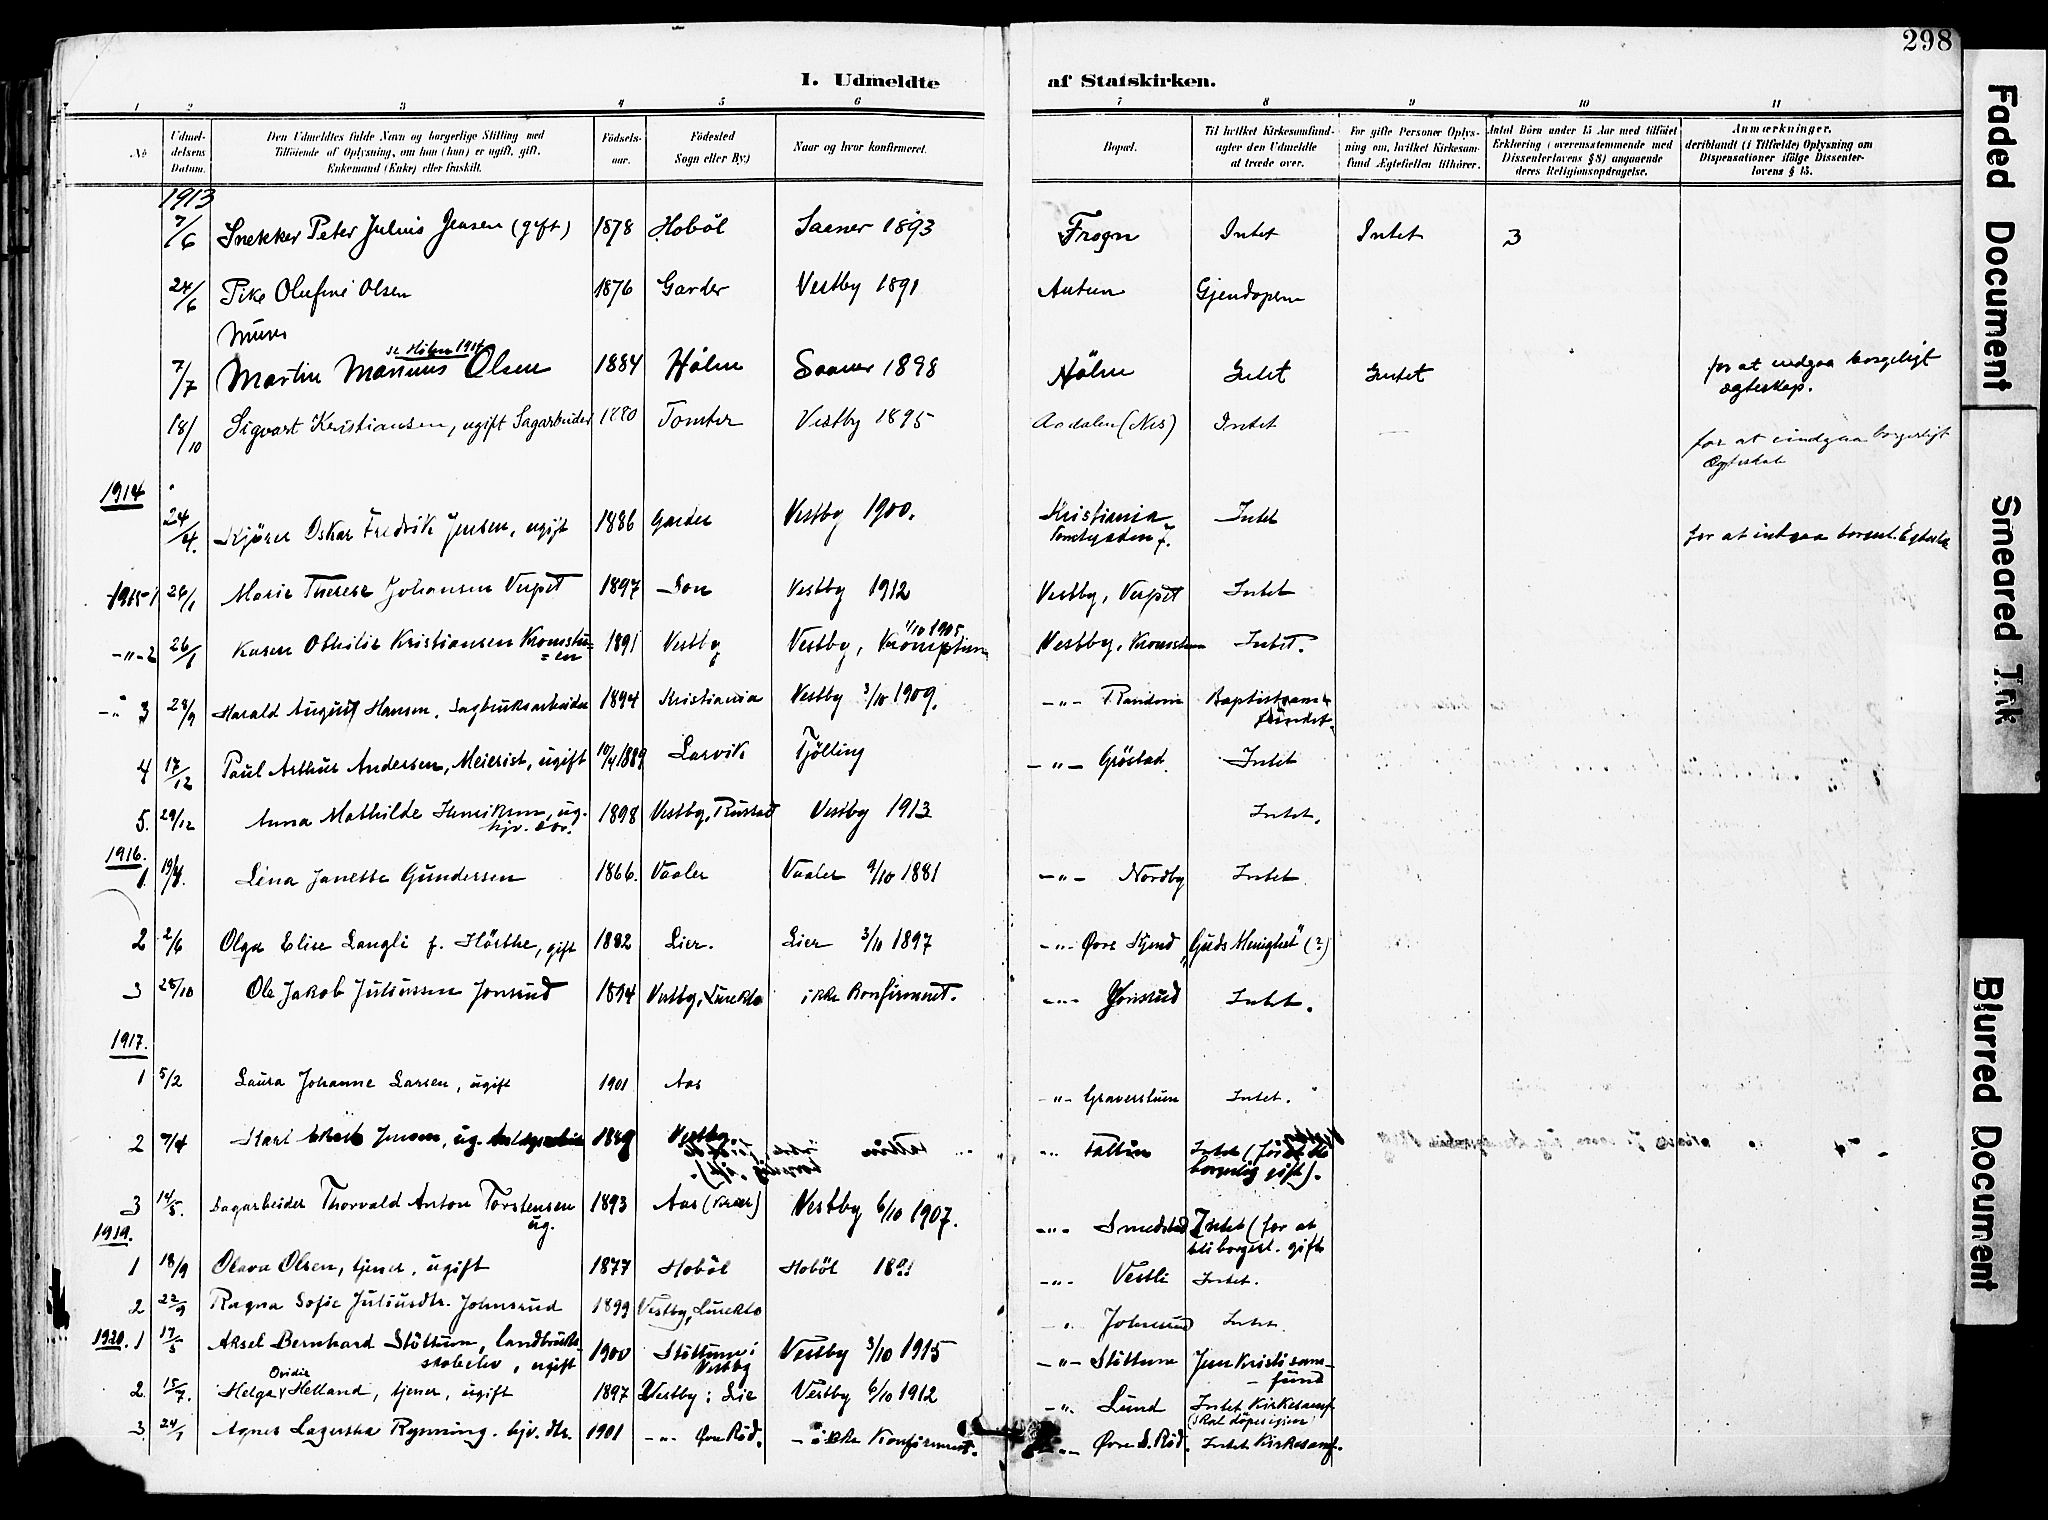 298
I. Udmeldte af Statskirken.
1 2 3 4 5 6 7 8 9 10 11
No
Udmeldelsens Datum.
Den Udmeldtes fulde Navn og borgerlige Stilling med
Tilföiende af Oplysning, om han (hun) er ugift, gift,
Enkemand (Enke) eller fraskilt.
Födselsaar.
Födested
Sogn eller By.)
Naar og hvor konfirmeret.
Bopæl.
Til hvilket Kirkesamfund agter den Udmeldte at træde over.
For gifte Personer Oplysning om, hvilket Kirkesamfund Ægtefællen tilhörer.
Antal Börn under 15 Aar med tilföiet Erklæring (overensstemmende med Dissenterlovens § 8) angaaende deres Religionsopdragelse.
Anmærkninger, deriblandt (i Tilfælde) Oplysning om Dispensationer ifölge Dissenterlovens § 15.
1913
7/6 Snekker Peter Julius Jensen (gift) 1878 Hoböl Saaner 1893 Frogn Intet Intet 3
24/6 Pike Olufine Olsen 1876 Garder Vestby 1891 Gjendöpern
Murer
se Hölen 1914
7/7 Martin Marinus Olsen 1884 Hölen Saaner 1898 Hölen Intet Intet for at indgaa borgeligt
ægteskap.
18/10 Sigvart Kristiansen, ugift Sagarbeider 1880 Tomter Vestby 1895 Aadalen (Nes) Intet — for at indgaa borgerligt
Ægteskab
1914
24/4. Kjörer Oskar Fredrik Jensen, ugift 1886 Garder Vestby 1900. Kristiania
Tomtegaden 7. Intet for at indgaa borgerl. Egtesk
1915 1 26/1 Marie Therese Johansen Verpet 1897 Son Vestby 1912 Vestby, Verpet Intet
-"- 2 26/1 Karen Othilie Kristiansen Kromstu=
=en 1891 Vestby Vestby, 1/10 1905, Vestby, Intet.
-"- 3 28/9 Harald August Hansen, Sagbruksarbeider 1894 Kristiania Vestby 3/10 1909. -"- Randem Baptistsam=
fundet.
4 17/12 Paul Arthur Andersen, Meierist, ugift 10/4 1889 Larvik Tjölling -"- Gröstad Intet
5. 29/12 Anna Mathilde Henriksen, ug.
hjv. dtr. 1898 Vestby, Rustad Vestby 1913 Intet.
1916.
1. 19/4. Lina Janette Gundersen 1866. Vaaler Vaaler 9/10 1881 -"- Nordby Intet
2 2/6 Olga Elise Langli f. Hörthe, gift 1882 Lier. Lier 3/10 1897 -"- Övre Kjend „Guds Menighet" (?)
3 28/10 Ole Jakob Juliussen Jonsrud 1894 Vestby, Lurekto ikke konfirmeret. -"- Jonsrud Intet.
1917.
1 5/2 Laura Johanne Larsen, ugift 1901 Aas -"- Graverstuen Intet.
2 7/4 Karl Jensen, ug. 1889 Vestby. -"- Intet (for at bli
borgerlig gift).
3 14/5. Sagarbeider Thorvald Anton Torstensen
ug. 1893 Aas (Kraer) Vestby 6/10 1907. -"- Smedstad Intet (for at
bli borgerl. gift
1919.
1 18/9 Olava Olsen, tjener, ugift 1877 Hoböl Hoböl 1891 -"- Vestli Intet.
2 22/9 Ragna Sofie Juliusdtr. Johnsrud 1899 Vestby, Lurekto " Johnsrud Intet.
1920. 1 17/5 Aksel Bernhard Stöttum, landbruks=
skoleelev, ugift 1900 Stöttum i
Vestby Vestby 3/10 1915 -"- Stöttum Jesu Kristi sam-
fund
Ovidia
2. 15/7. Helga Helland, tjener, ugift 1897 Vestby: Lie Vestby 6/10 1912 -"- Lund Intet Kirkesamf.
(skal döpes igjen)
3 24/1 Agnes Lagertha Rynning. hjv. dtr. 1901 -"- Övre Röd. - ikke Konfirmeret. -"- Övre S. Röd. Intet Kirkesamf.
Faded Document
Smeared Ink
Blurred Document